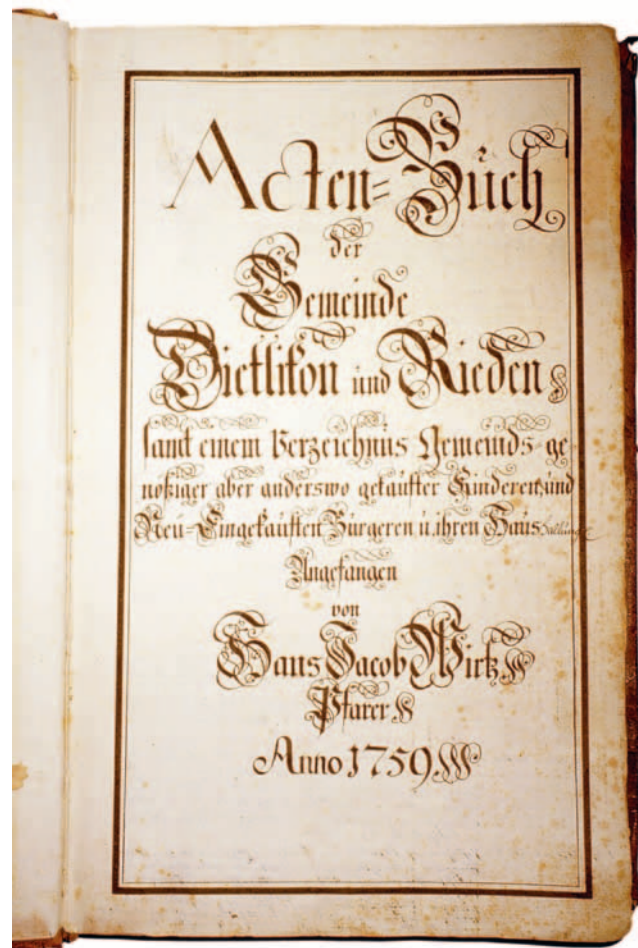 Acten=Buch
der
Gemeinde
Dietlikon und Rieden
samt einem Verzeichnus Gemeinds-ge
noßiger aber anderswo getaufter Kinderen, und
Neu-Eingekauften Burgeren u. ihren Haushaltungen
Angefangen
von
Hans Jacob Wirtz
Pfarer
Anno 1759